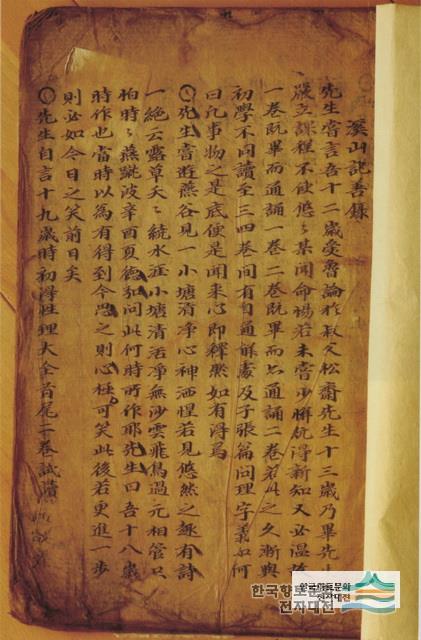 溪山記善錄
先生嘗言吾十二歲受魯論於叔父松齋先生十三歲乃畢先生
嚴立課程不使悠〻某聞命惕若未嘗少懈旣得新知又必溫故
一卷旣畢而通誦一卷二卷旣畢而亦通誦二卷若此之久漸與
初學不同讀至三四卷間有自通解處及子張篇問理字義如何
曰凡事物之是底便是聞來心卽釋然如有得焉
○先生嘗遊燕谷見一小塘淸淨心神洒惺若見悠然之趣有詩
一絶云露草夭〻繞水涯小塘淸活淨無沙雲飛鳥過元相管只
怕時〻燕蹴波辛酉夏德弘問此何時所作耶先生曰吾十八歲
時作也當時以爲有得到今思之則心極可笑此後若更進一步
則必如今日之笑前日矣
○先生自言十九歲時初得性理大全首尾二卷試讀
한국향토문화
전자대전
한국향토문화
전자대전